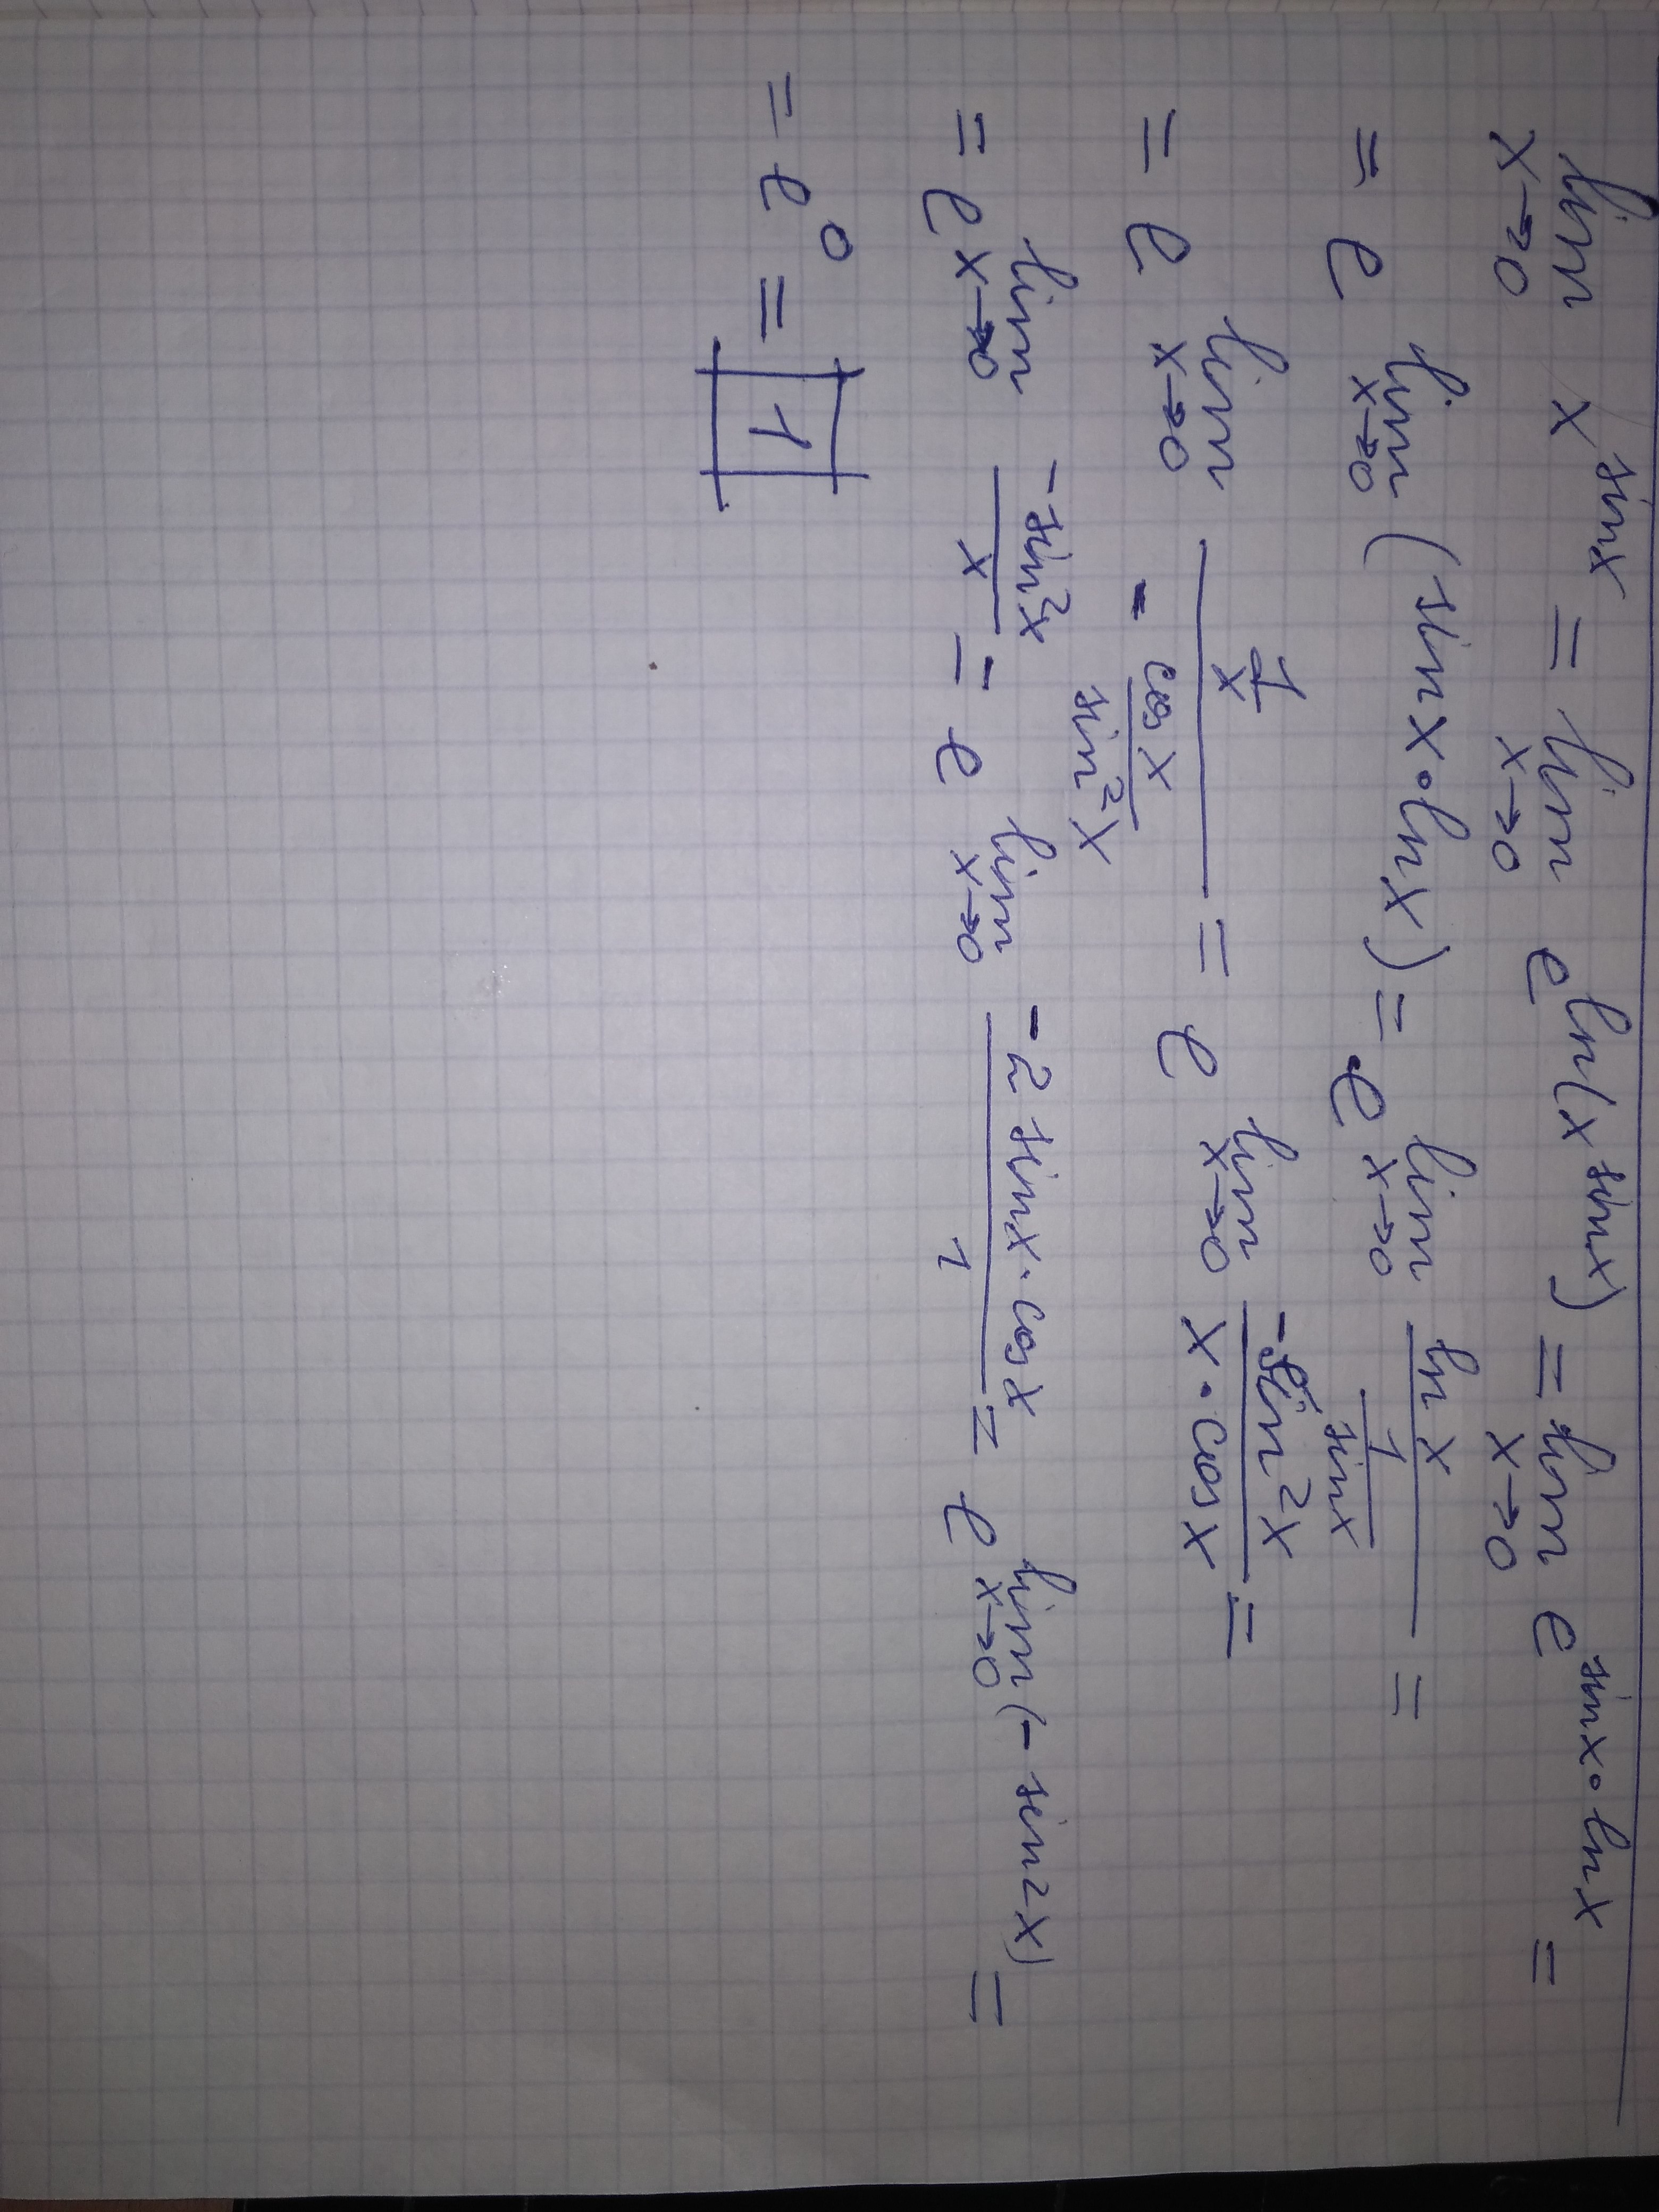 lim x→0 x^sinx = lim x→0 e^ln(x^sinx) = lim x→0 e^sinx·lnx =
= e^lim x→0 (sinx·lnx) = e^lim x→0 lnx/(1/sinx) =
= e^lim x→0 (1/x)/(-cosx/sin²x) = e^lim x→0 -sin²x/(x·cosx) =
= e^lim x→0 -sin²x/x = e^lim x→0 -2sinx·cosx/1 = e^lim x→0 (-sin2x) =
= e^0 = 1